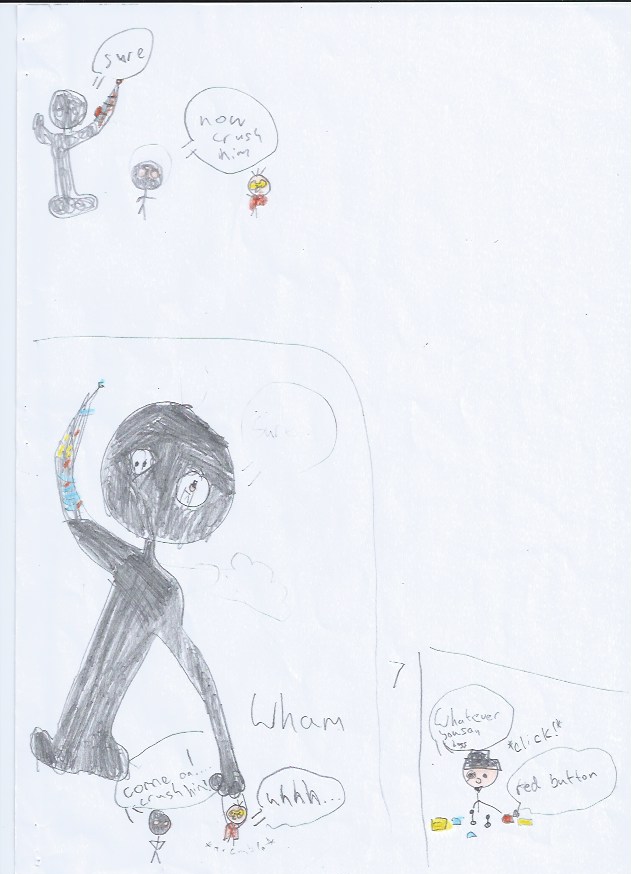 sure
now
crush
him
Wham
come on...
crush him!
uhhh...
*tremble*
7
Whatever
you say
boss
*click!*
red button